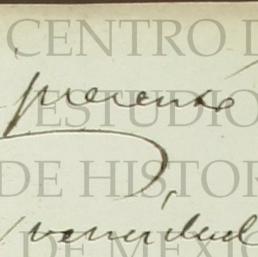 CENTRO D
presente
ESTUDIO
DE HISTOR
DE MEXICO